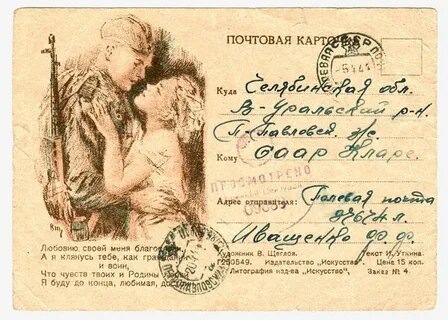 ПОЧТОВАЯ КАРТОЧКА
Куда Челябинская обл.
В-Уральский р-н
П-Павловск. з/с
Кому Саар Кларе.
ПРОСМОТРЕНО
Адрес отправителя: Полевая почта
Иващенко Ф. Ф.
Любовию своей меня благо
А я клянусь тебе, как граж
и воин,
Что чувств твоих и Родины
Я буду до конца, любимая, до
Художник В. Щеглов. Текст И. Уткина.
Г250549. Издательство „Искусство“. Цена 15 коп.
Литография изд-ва „Искусство“. Заказ № 4.